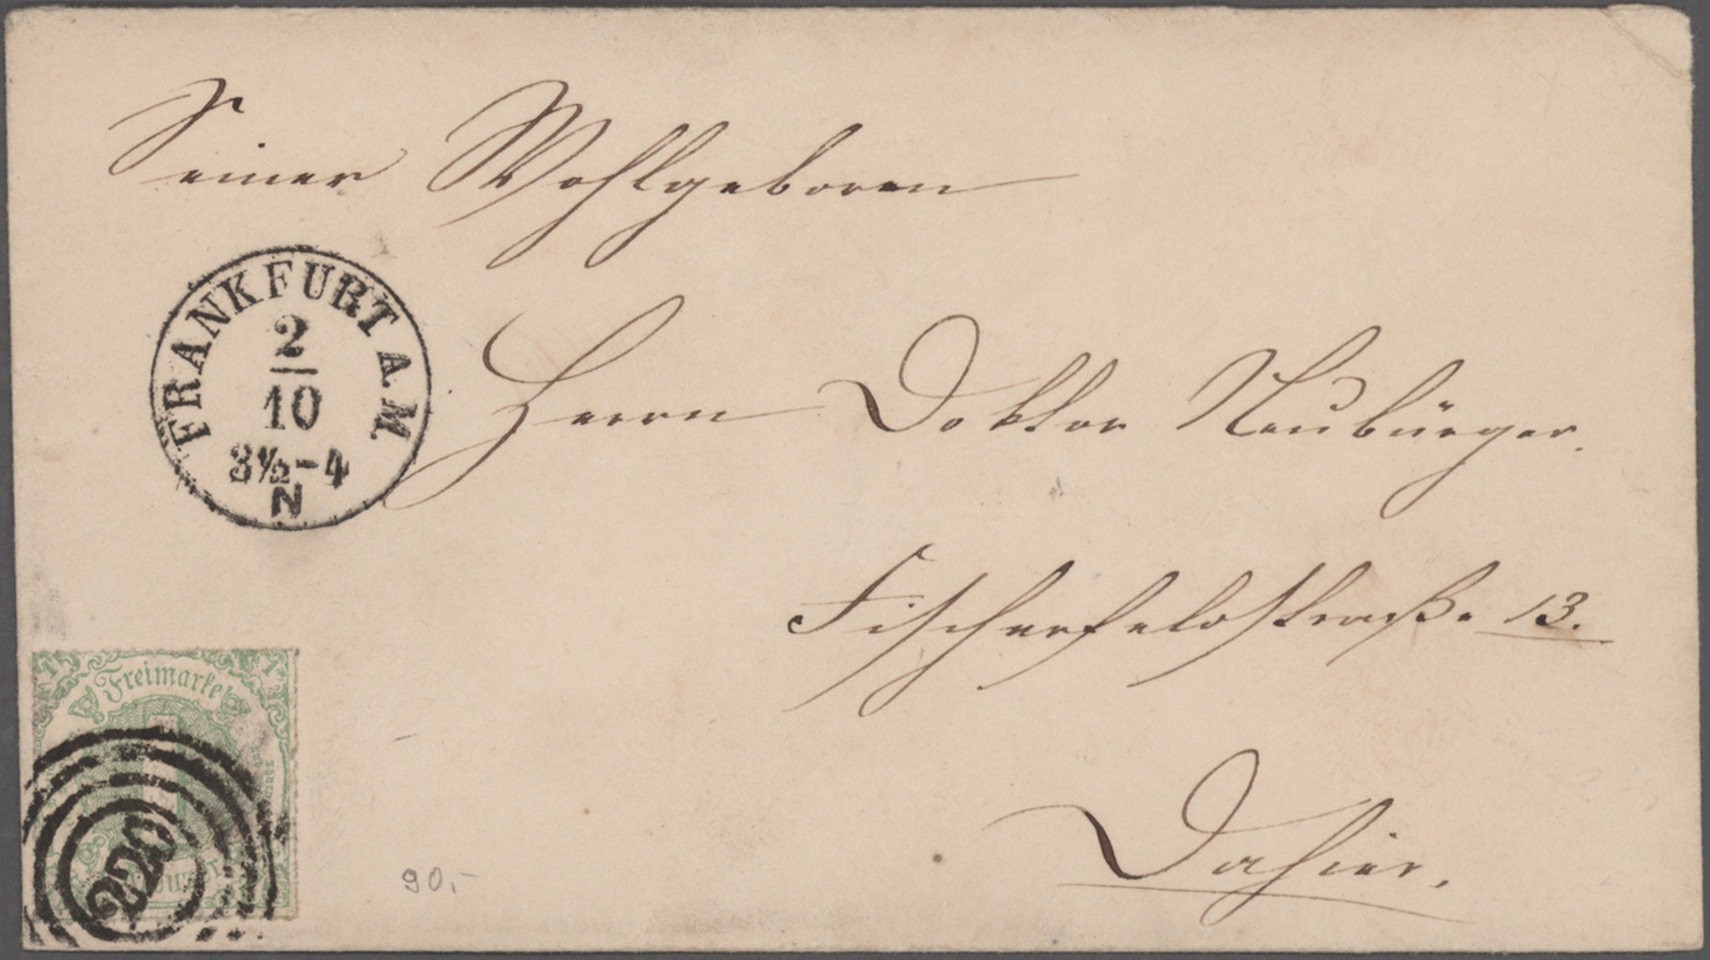 Seiner Wohlgeboren
FRANKFURT A. M.
2
10
3½-4
N
Herrn Doktor Neubürger.
Fischerfeldstraße 13.
Dahier.
Freimarke
220
90,-